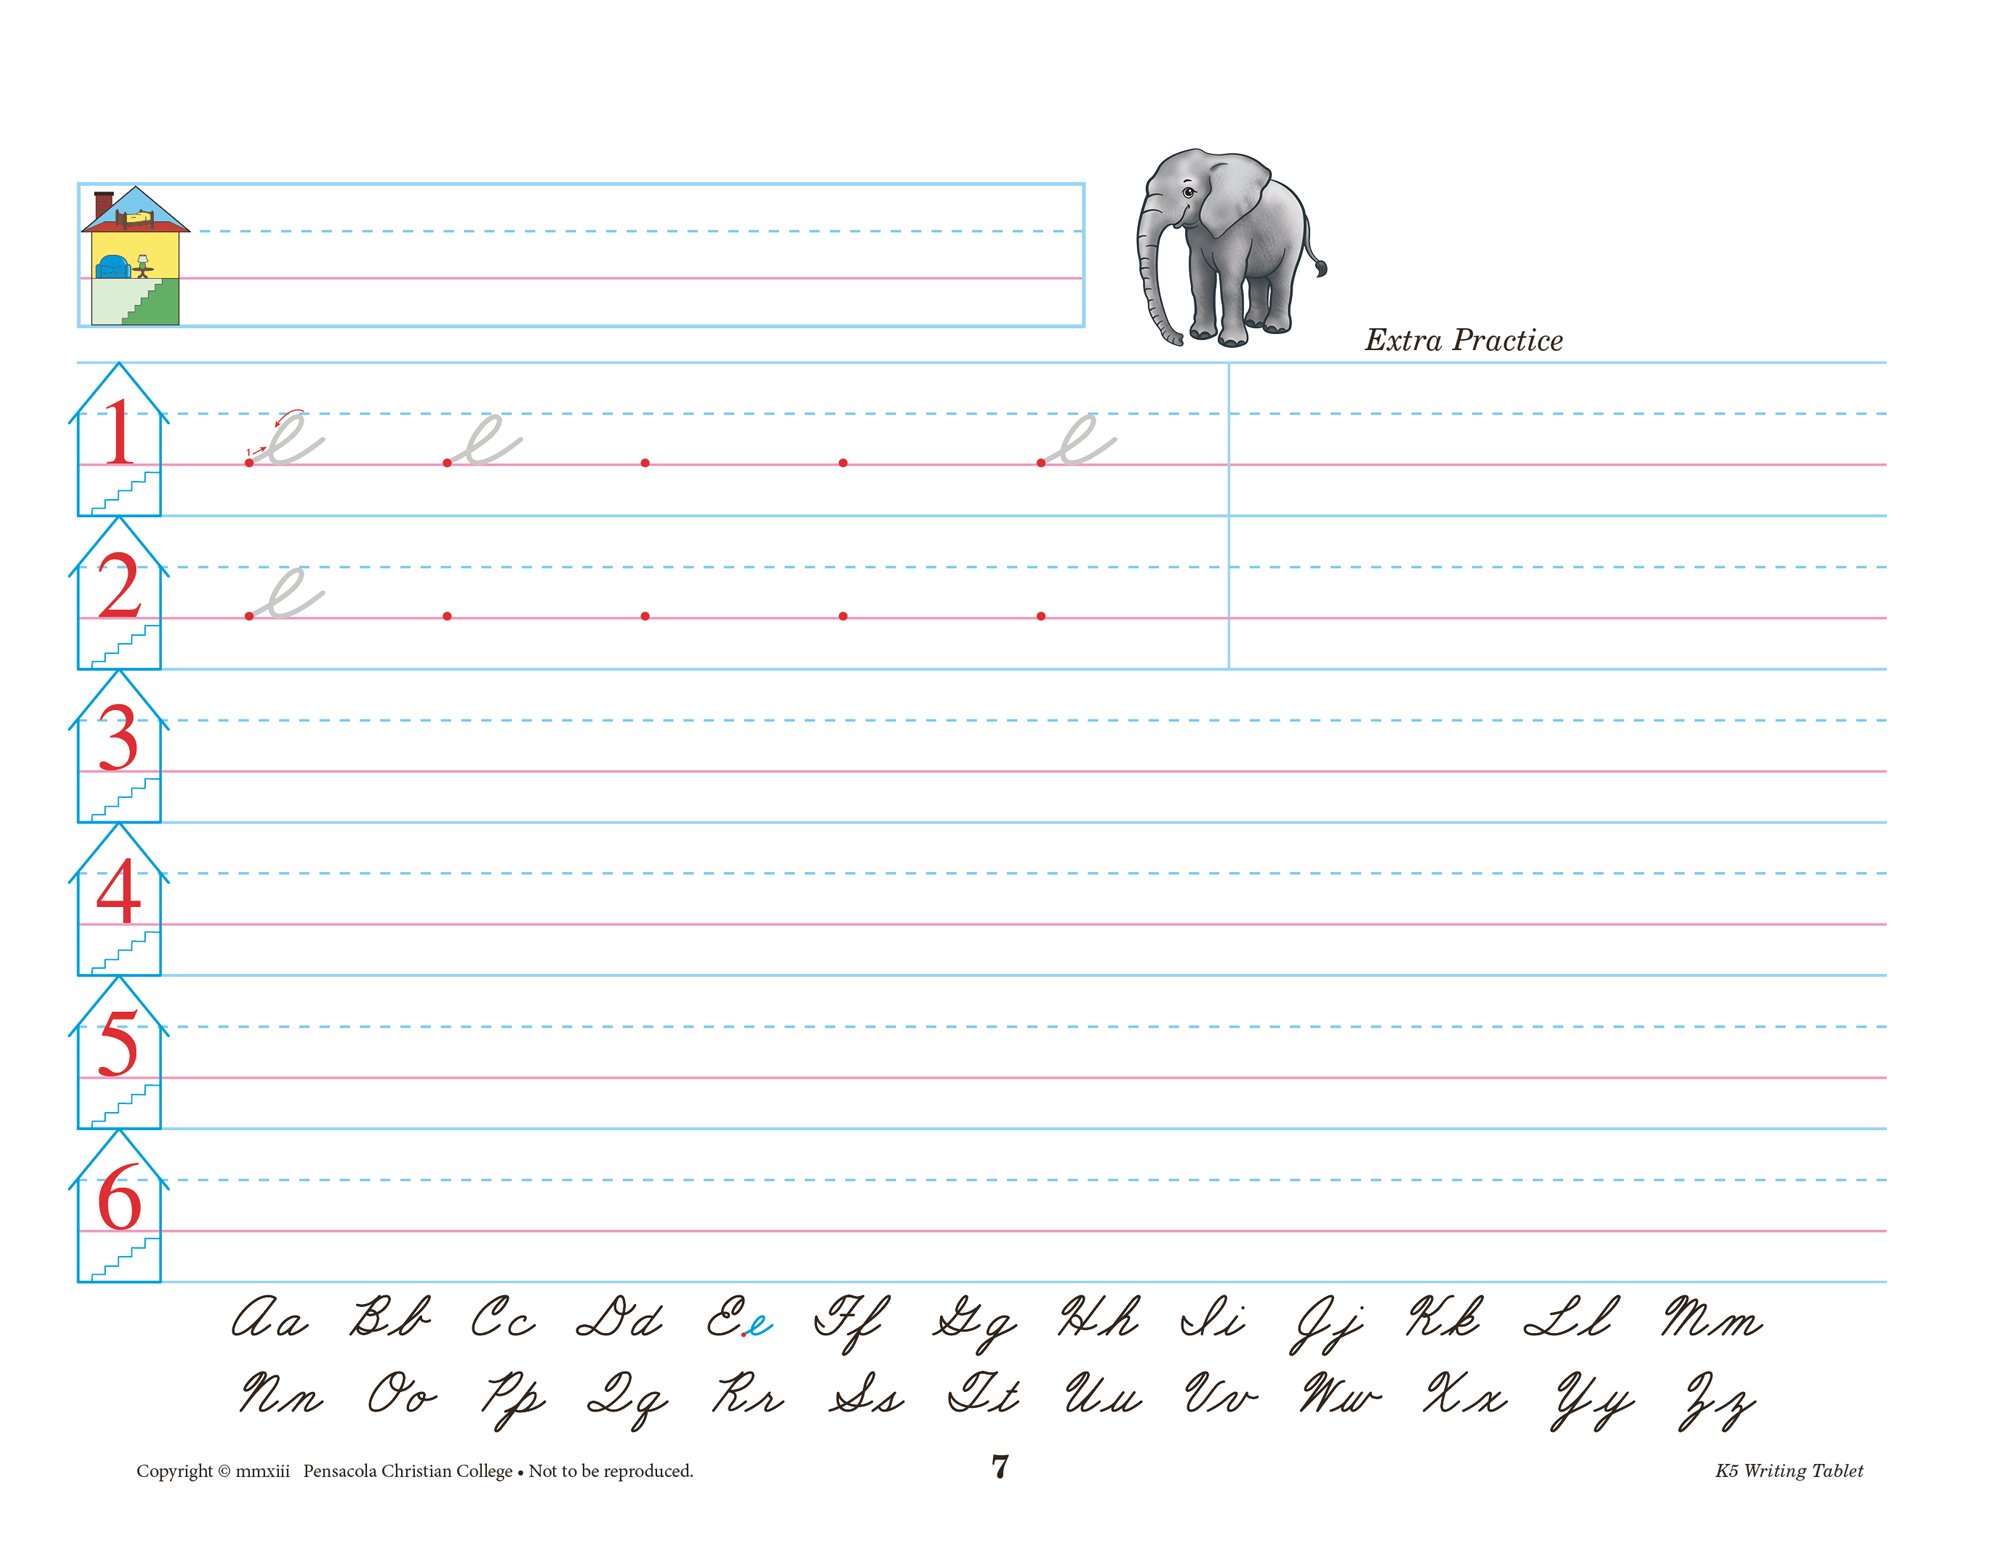 Extra Practice
1 1 e e e
2 e
3
4
5
6
Aa Bb Cc Dd Ee Ff Gg Hh Ii Jj Kk Ll Mm
Nn Oo Pp Qq Rr Ss Tt Uu Vv Ww Xx Yy Zz
Copyright © mmxiii Pensacola Christian College • Not to be reproduced. 7 K5 Writing Tablet